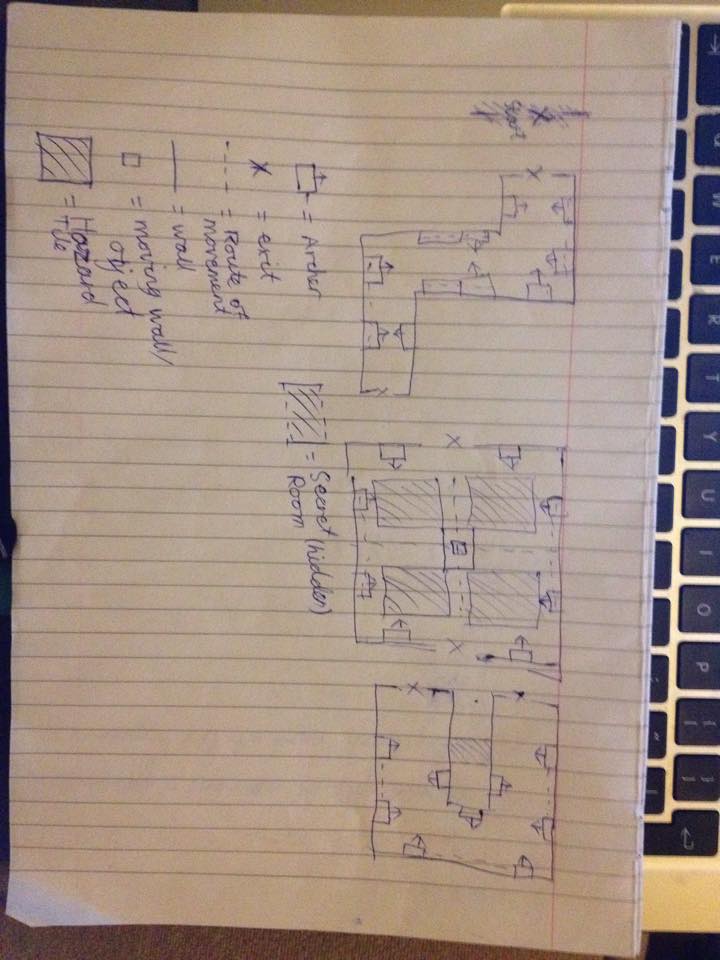 Start
= Archer
X = exit
= Route of
movement
= wall
= moving wall/
object
= Hazard
Tile
= Secret (hidden)
Room
Q W E R T Y U I O P